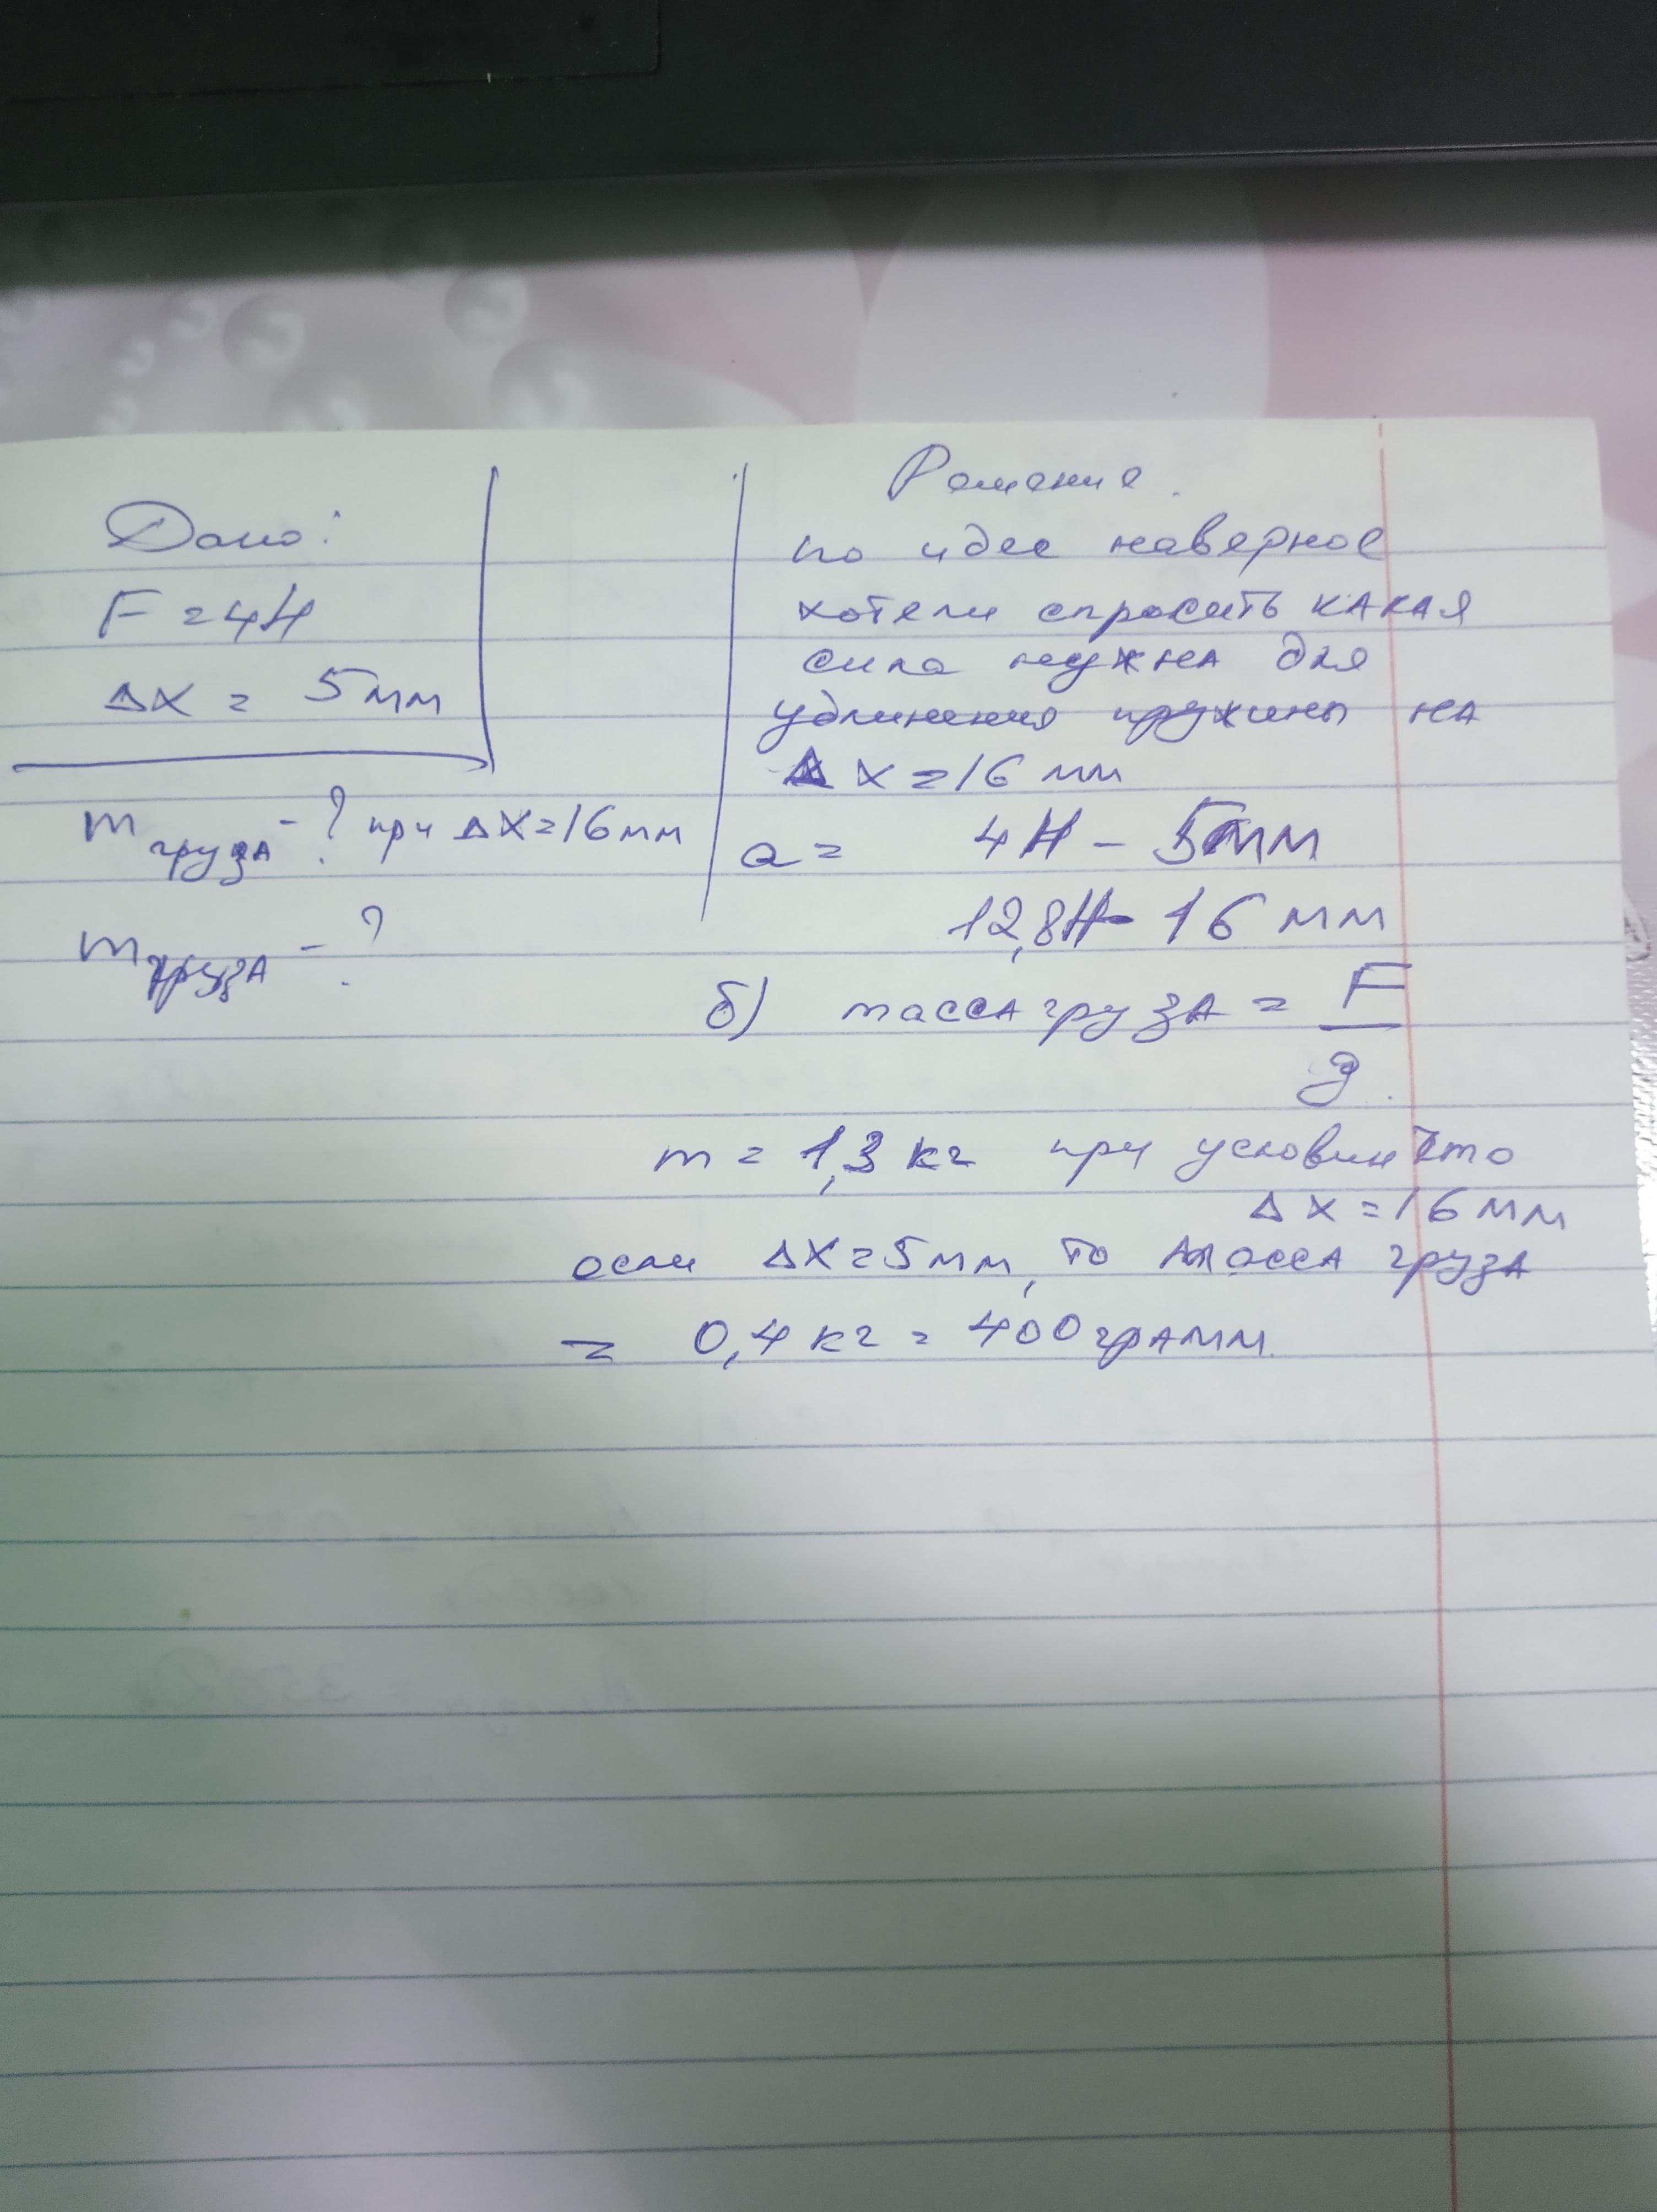 Дано:
F = 4Н
Δx = 5мм
m груза - ? при Δx=16мм
m груза - ?
Решение.
по идее наверное
хотели спросить какая
сила нужна для
удлинения пружины на
Δx=16 мм
а = 4Н - 5мм
12,8Н - 16 мм
б) масса груза = F
g.
m = 1,3 кг при условии что
Δx=16мм
если Δx=5мм, то масса груза
= 0,4кг = 400грамм.